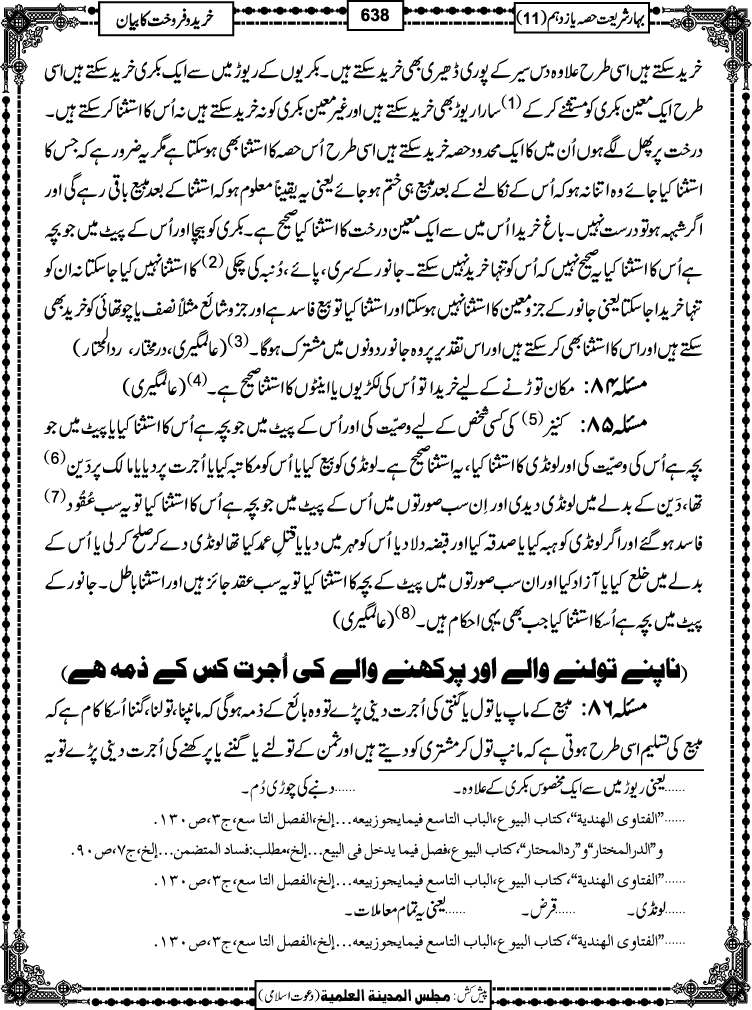 بہار شریعت حصہ یازدہم (11)
638
خرید و فروخت کا بیان
خرید سکتے ہیں اسی طرح علاوہ دس سیر کے پوری ڈھیری بھی خرید سکتے ہیں۔ بکریوں کے ریوڑ میں سے ایک بکری خرید سکتے ہیں اسی
طرح ایک معین بکری کو مستثنےٰ کرکے (1) سارا ریوڑ بھی خرید سکتے ہیں اور غیر معین بکری کو نہ خرید سکتے ہیں نہ اُس کا استثنا کرسکتے ہیں۔
درخت پر پھل لگے ہوں اُن میں کا ایک محدود حصہ خرید سکتے ہیں اسی طرح اُس حصہ کا استثنا بھی ہوسکتا ہے مگر یہ ضرور ہے کہ جس کا
استثنا کیا جائے وہ اتنا نہ ہو کہ اُس کے نکالنے کے بعد مبیع ہی ختم ہوجائے یعنی یہ یقیناً معلوم ہو کہ استثنا کے بعد مبیع باقی رہے گی اور
اگر شبہہ ہو تو درست نہیں۔ باغ خریدا اُس میں سے ایک معین درخت کا استثنا کیا صحیح ہے۔ بکری کو بیچا اور اُس کے پیٹ میں جو بچہ
ہے اُس کا استثنا کیا یہ صحیح نہیں کہ اُس کو تنہا خرید نہیں سکتے۔ جانور کے سری، پائے، دُنبہ کی چکی (2) کا استثنا نہیں کیا جاسکتا نہ ان کو
تنہا خریدا جاسکتا یعنی جانور کے جزو معین کا استثنا نہیں ہوسکتا اور استثنا کیا تو بیع فاسد ہے اور جزو شائع مثلاً نصف یا چوتھائی کو خرید بھی
سکتے ہیں اور اس کا استثنا بھی کرسکتے ہیں اور اس تقدیر پر وہ جانور دونوں میں مشترک ہوگا۔ (3) (عالمگیری، درمختار، ردالمحتار)
مسئلہ ۸۴: مکان توڑنے کے لیے خریدا تو اُس کی لکڑیوں یا اینٹوں کا استثنا صحیح ہے۔ (4) (عالمگیری)
مسئلہ ۸۵: کنیز (5) کی کسی شخص کے لیے وصیّت کی اور اُس کے پیٹ میں جو بچہ ہے اُس کا استثنا کیا یا پیٹ میں جو
بچہ ہے اُس کی وصیّت کی اور لونڈی کا استثنا کیا، یہ استثنا صحیح ہے۔ لونڈی کو بیع کیا یا اُس کو مکاتبہ کیا یا اُجرت پر دیا یا مالک پر دَین (6)
تھا، دَین کے بدلے میں لونڈی دیدی اور اِن سب صورتوں میں اُس کے پیٹ میں جو بچہ ہے اُس کا استثنا کیا تو یہ سب عُقُود (7)
فاسد ہوگئے اور اگر لونڈی کو ہبہ کیا یا صدقہ کیا اور قبضہ دلا دیا اُس کو مہر میں دیا یا قتلِ عمد کیا تھا لونڈی دے کر صلح کرلی یا اُس کے
بدلے میں خلع کیا یا آزاد کیا اور ان سب صورتوں میں پیٹ کے بچہ کا استثنا کیا تو یہ سب عقد جائز ہیں اور استثنا باطل۔ جانور کے
پیٹ میں بچہ ہے اُسکا استثنا کیا جب بھی یہی احکام ہیں۔ (8) (عالمگیری)
(ناپنے تولنے والے اور پرکھنے والے کی اُجرت کس کے ذمہ ھے)
مسئلہ ۸۶: مبیع کے ماپ یا تول یا گنتی کی اُجرت دینی پڑے تو وہ بائع کے ذمہ ہوگی کہ ماپنا، تولنا، گننا اُسکا کام ہے کہ
مبیع کی تسلیم اسی طرح ہوتی ہے کہ ماپ تول کر مشتری کو دیتے ہیں اور ثمن کے تولنے یا گننے یا پرکھنے کی اُجرت دینی پڑے تو یہ
......یعنی ریوڑ میں سے ایک مخصوص بکری کے علاوہ۔ ......دنبے کی چوڑی دُم۔
......"الفتاوی الهندية"، كتاب البيوع، الباب التاسع فيما يجوز بيعه...إلخ، الفصل التاسع، ج۳، ص۱۳۰.
و"الدرالمختار" و"ردالمحتار"، كتاب البيوع، فصل فيما يدخل فى البيع...إلخ، مطلب: فساد المتضمن...إلخ، ج۷، ص۹۰.
......"الفتاوی الهندية"، كتاب البيوع، الباب التاسع فيما يجوز بيعه...إلخ، الفصل التاسع، ج۳، ص۱۳۰.
......لونڈی۔ ......قرض۔ ......یعنی یہ تمام معاملات۔
......"الفتاوی الهندية"، كتاب البيوع، الباب التاسع فيما يجوز بيعه...إلخ، الفصل التاسع، ج۳، ص۱۳۰.
پیش کش: مجلس المدينة العلمية (دعوت اسلامی)